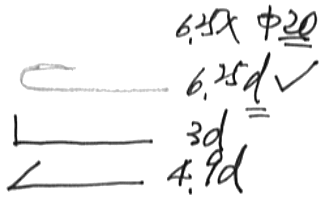 6.25× ϕ20
6.25d ✓
3d
4.9d